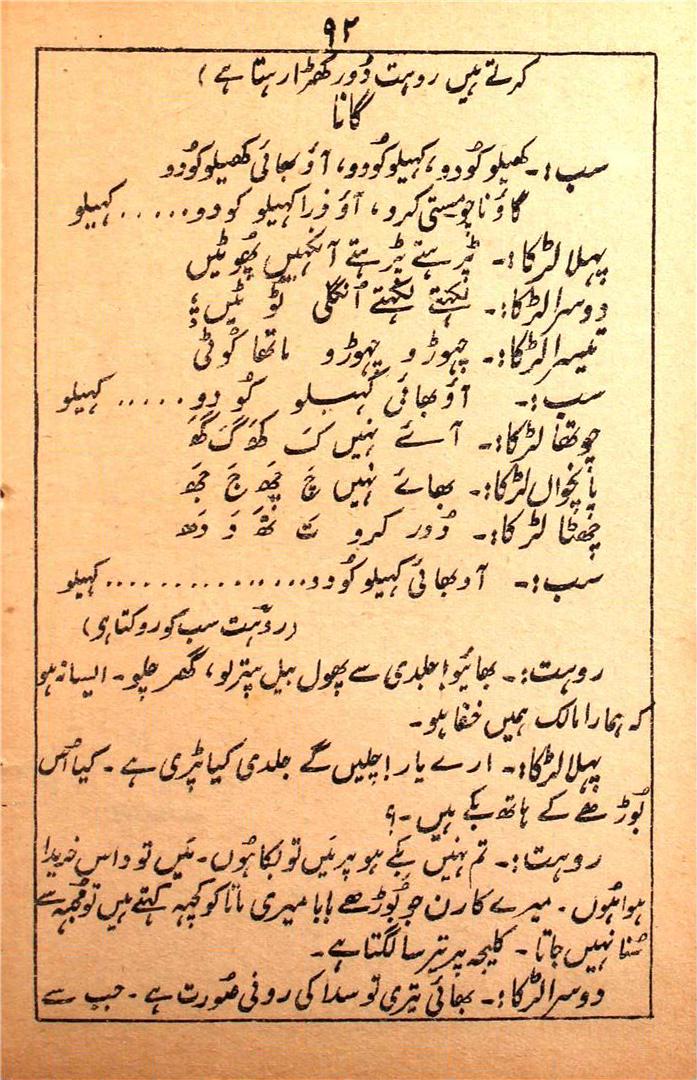 ۹۲
کرتے ہیں روہت دُور کھڑا رہتا ہے)
گانا
سب:۔ کھیلو کُودو، کہیلو کُودو، آؤ بھائی کھیلو کُودو
گاؤ ناچو مستی کرو، آؤ ذرا کہیلو کودو..... کہیلو
پہلا لڑکا:۔ پڑہتے پڑہتے آنکہیں پھُوٹیں
دوسرا لڑکا:۔ لکہتے لکہتے اُنگلی ٹوُٹیں؛
تیسرا لڑکا:۔ چہوڑو چہوڑو ماتھا کُوٹی
سب:۔ آؤ بھائی کہیلو کُودو..... کہیلو
چوتھا لڑکا:۔ آئے نہیں کَ کھَ گَ گھَ
پانچواں لڑکا:۔ بھائے نہیں چَ چھَ جَ جھَ
چھٹا لڑکا:۔ دُور کرو تَ تھَ دَ دھَ
سب:۔ آو بھائی کہیلو کُودو............... کہیلو
(روہت سب کو روکتا ہی)
روہت:۔ بھائیو! جلدی سے پھول بیل پتر لو، گھر چلو۔ ایسا نہ ہو
کہ ہمارا مالک ہمیں خفا ہو۔
پہلا لڑکا:۔ ارے یار! چلیں گے جلدی کیا پڑی ہے۔ کیا اُس
بُوڑھے کے ہاتھ بِکے ہیں۔؟
روہت:۔ تم نہیں بِکے ہو پر مَیں تو بِکا ہُوں۔ مَیں تو داس خریدا
ہوا ہُوں۔ میرے کارن جو بُوڑھے بابا میری ماتا کو کچہہ کہتے ہیں تو مُجہہ سے
سُنا نہیں جاتا۔ کلیجہ پر تیر سا لگتا ہے۔
دوسرا لڑکا:۔ بھائی تیری تو سدا کی رونی صُورت ہے۔ جب سے